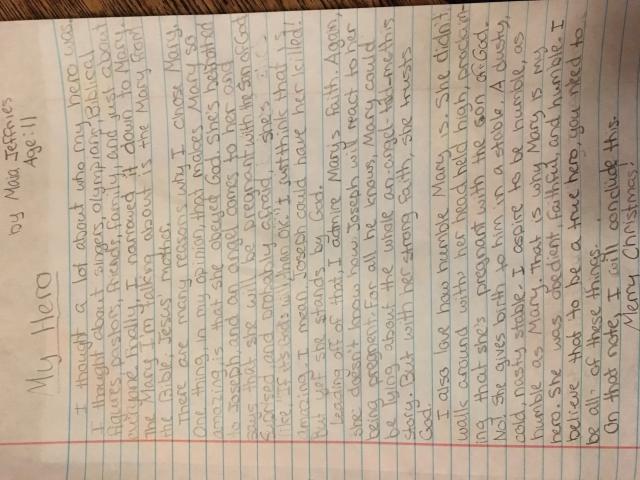 My Hero
by Maia Jeffries
Age: 11
I thought a lot about who my hero was.
I thought about singers, olympians, Biblical
figures, pastors, friends, family, and just about
everyone. Finally, I narrowed it down to Mary.
The Mary I'm talking about is the Mary from
the Bible. Jesus' mother.
There are many reasons why I chose Mary.
One thing, in my opinion, that makes Mary so
amazing is that she obeyed God. She's betrothed
to Joseph and an angel comes to her and
says that she will be pregnant with the Son of God.
Suprised and probably afraid, she's
like "If its God's will, then OK." I just think that is
amazing. I mean Joseph could have her killed!
But yet she stands by God.
Leading off of that, I admire Mary's faith. Again,
she doesn't know how Joseph will react to her
being pregnent. For all he knows, Mary could
be lying about the whole an-angel-told-me-this
story. But with her strong faith, she trusts
God.
I also love how humble Mary is. She didn't
walk around with her head held high, proclaim-
ing that she's pregnant with the son of God.
No! She gives birth to him in a stable. A dusty,
cold, nasty stable. I aspire to be humble, as
humble as Mary. That is why Mary is my
hero. She was obedient, faithful, and humble. I
believe that to be a true hero, you need to
be all of these things.
On that note, I will conclude this.
Merry Christmas!